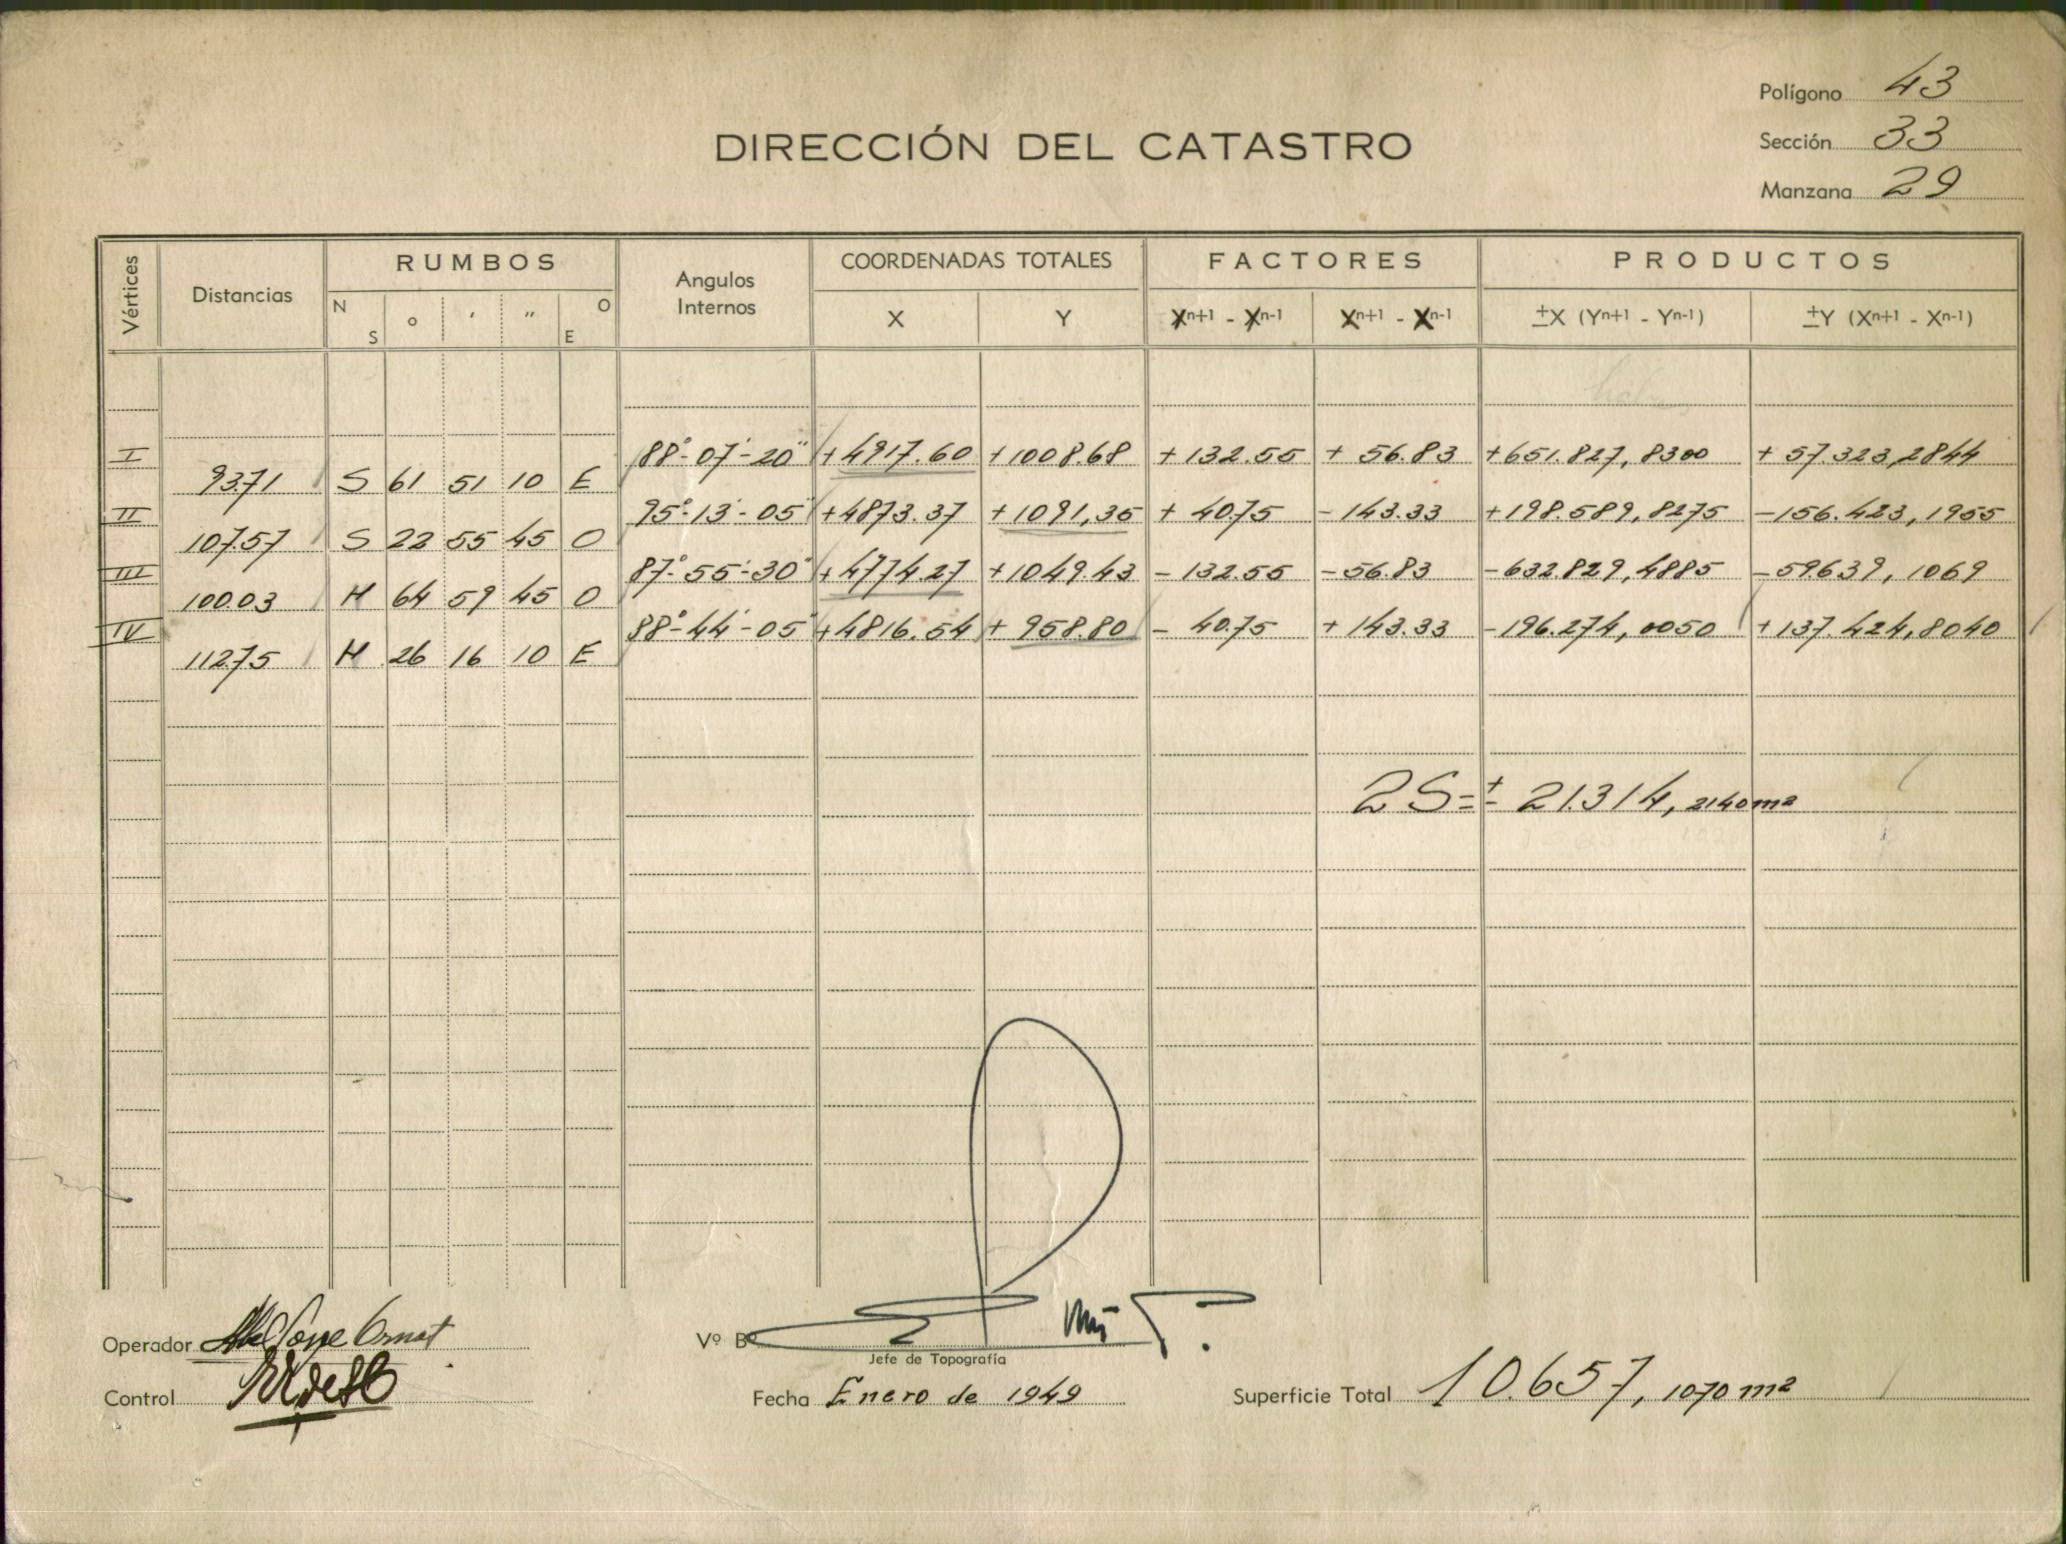 Polígono 43
DIRECCIÓN DEL CATASTRO
Sección 33
Manzana 29
Vértices Distancias RUMBOS Angulos Internos COORDENADAS TOTALES FACTORES PRODUCTOS
N S ° ' " O E X Y Xn+1 - Xn-1 Xn+1 - Xn-1 ±X (Yn+1 - Yn-1) ±Y (Xn+1 - Xn-1)
I 88°-07'-20" +4917.60 +1008.68 +132.55 + 56.83 +651.827,8300 + 57.323,2844
93.71 S 61 51 10 E
II 95°-13'-05" +4873.37 +1091,35 + 40.75 -143.33 +198.589,8275 -156.423,1955
107.57 S 22 55 45 O
III 87°-55'-30" +4774.27 +1049.43 -132.55 -56.83 -632.829,4885 -59.639,1069
100.03 N 64 59 45 O
IV 88°-44'-05" +4816.54 + 958.80 - 40.75 +143.33 -196.274,0050 +137.424,8040
112.75 N 26 16 10 E
2S=± 21.314,2140 m2
Operador
Vº Bº
Jefe de Topografía
Control
Fecha Enero de 1949
Superficie Total 10.657,1070 m2